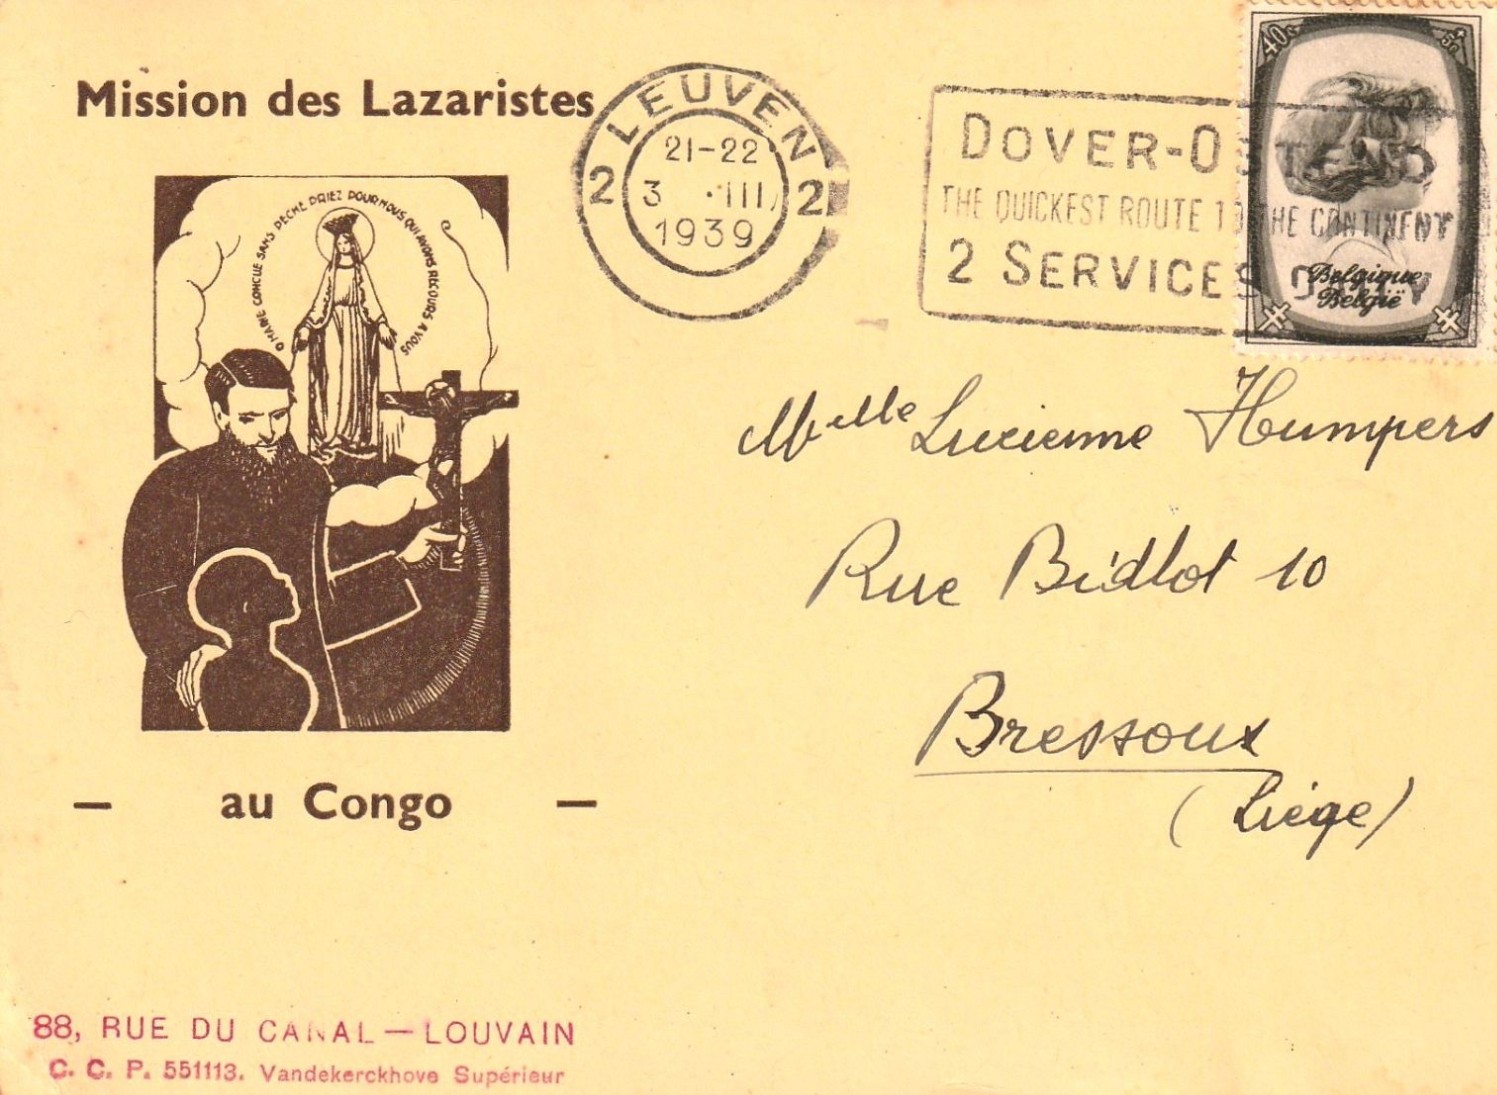 Mission des Lazaristes
O MARIE CONCUE SANS PECHE PRIEZ POUR NOUS QUI AVONS RECOURS A VOUS
— au Congo —
88, RUE DU CANAL — LOUVAIN
C. C. P. 551113. Vandekerckhove Supérieur
LEUVEN
21-22
2 3 ·III 2
1939
DOVER-OSTEND
THE QUICKEST ROUTE TO THE CONTINENT
2 SERVICES DAILY
40c +5c
Belgique
België
Melle Lucienne Humpers
Rue Bidlot 10
Bressoux
(Liége)